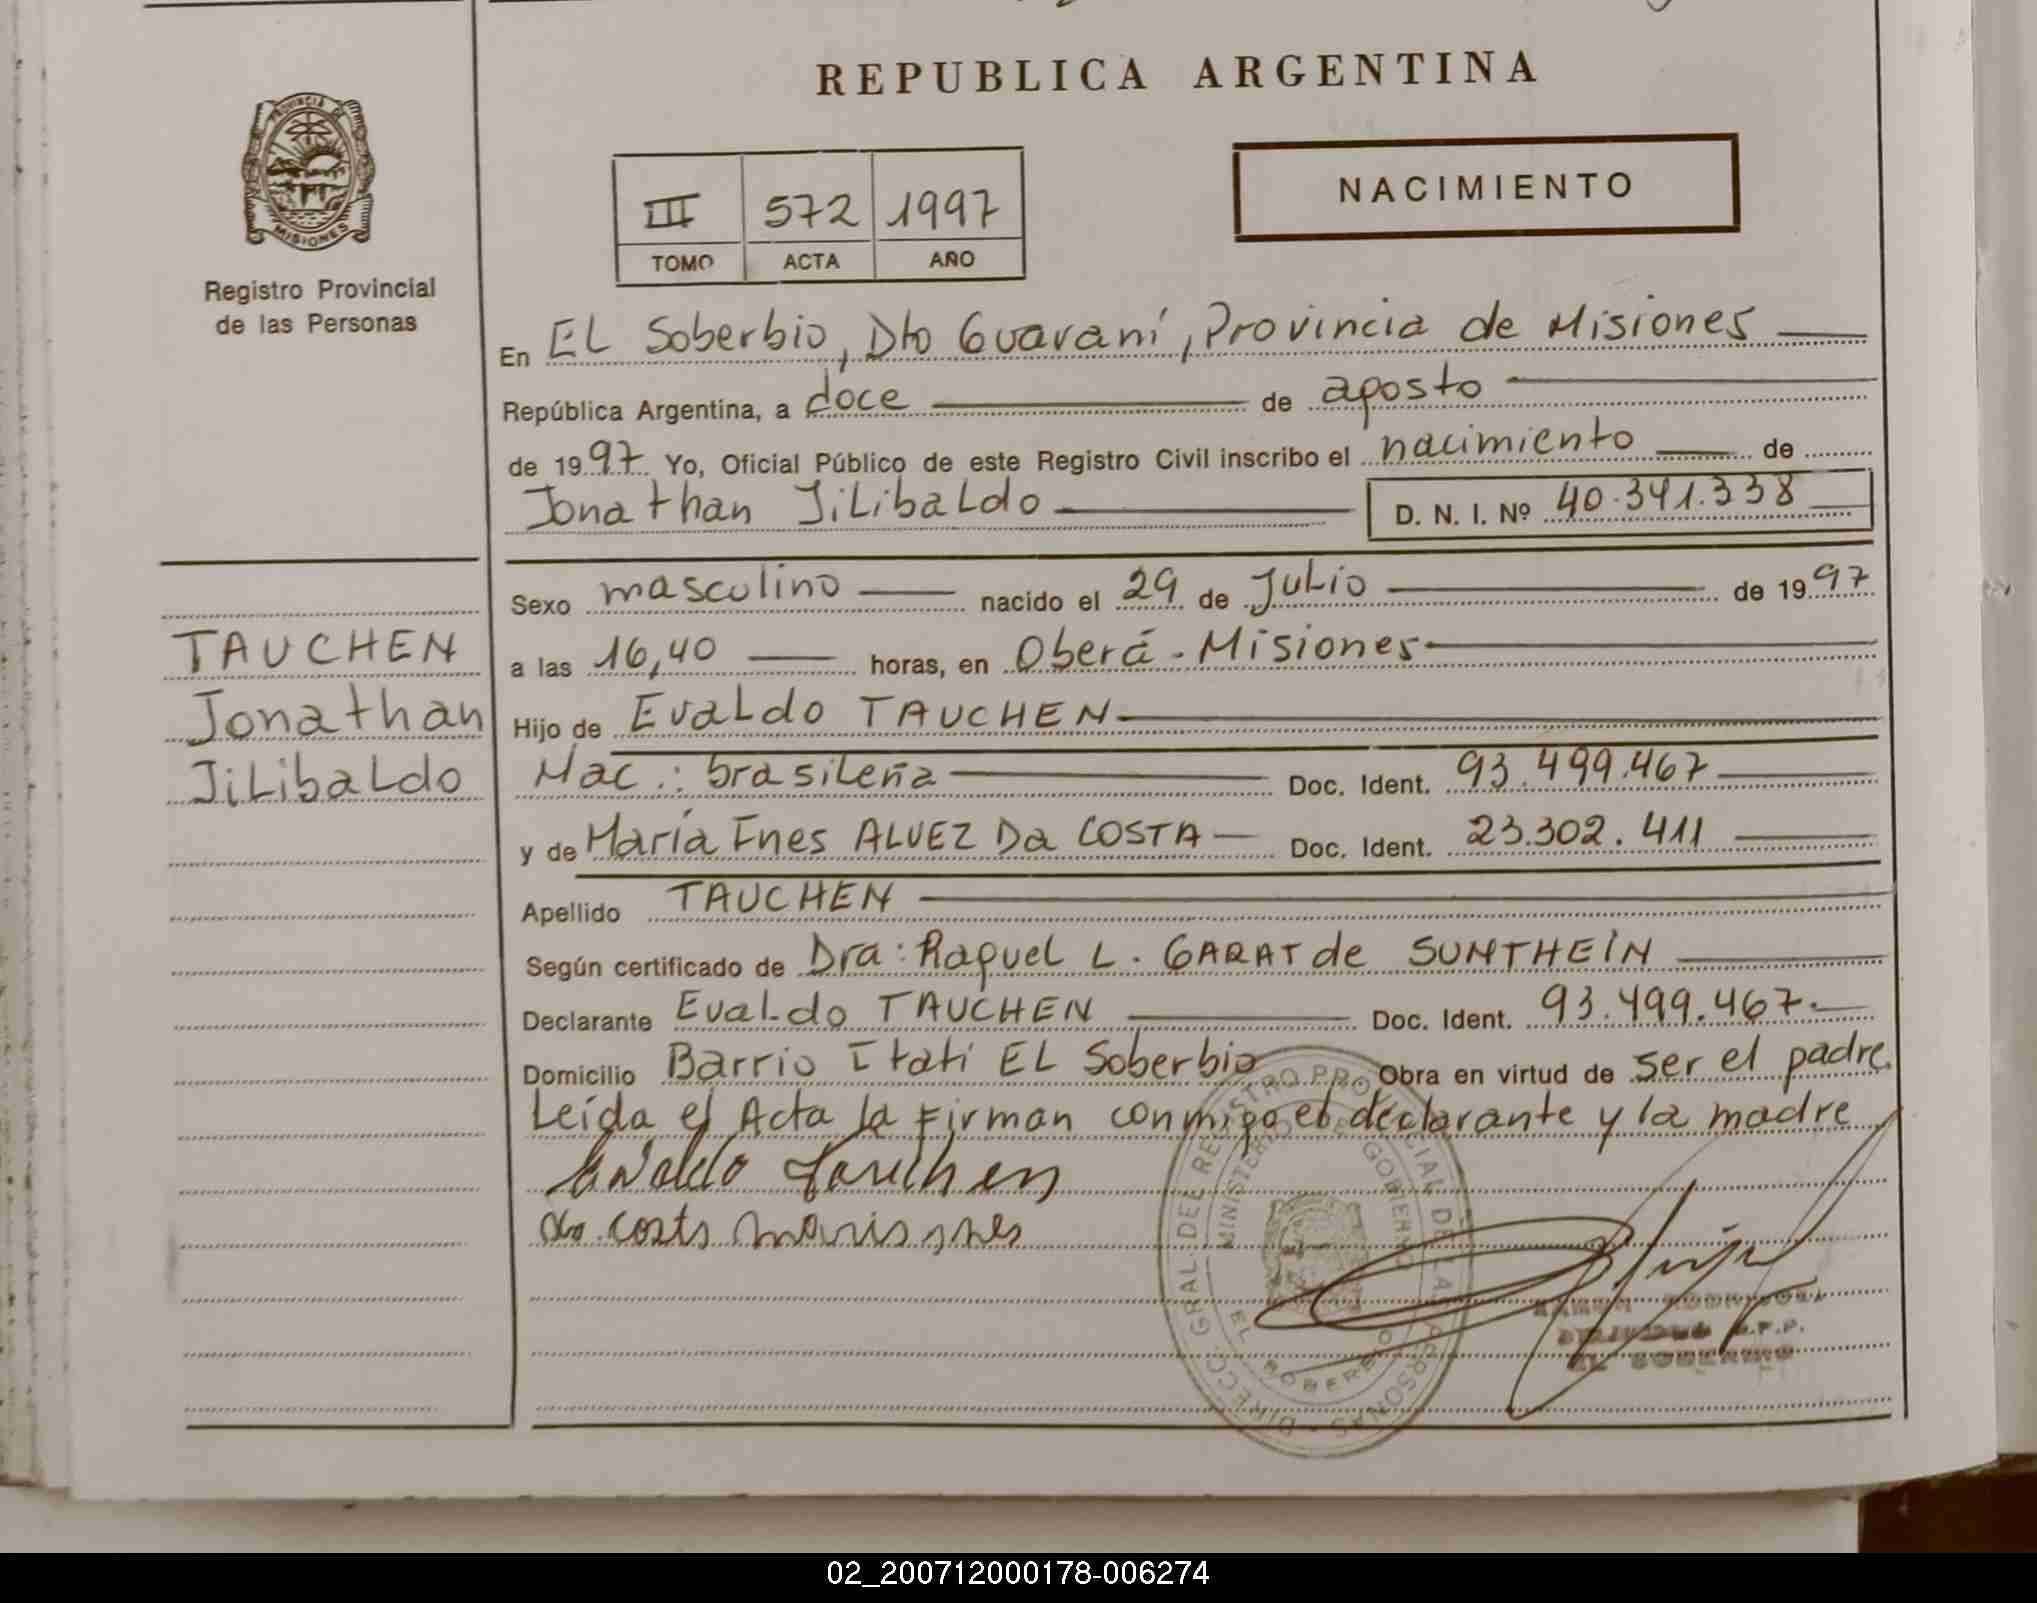 REPUBLICA ARGENTINA
PROVINCIA DE
MISIONES
Registro Provincial
de las Personas
III 572 1997
TOMO ACTA AÑO
NACIMIENTO
En EL Soberbio, Dto Guaraní, Provincia de Misiones
República Argentina, a doce de agosto
de 1997 Yo, Oficial Público de este Registro Civil inscribo el nacimiento de
Jonathan JiLibaLdo D. N. I. Nº 40.341.338
Sexo masculino nacido el 29 de JuLio de 1997
a las 16,40 horas, en Oberá - Misiones
TAUCHEN
Jonathan
JiLibaLdo
Hijo de EvaLdo TAUCHEN
Nac.: brasileña Doc. Ident. 93.499.467
y de María Ines ALVEZ Da COSTA Doc. Ident. 23.302.411
Apellido TAUCHEN
Según certificado de Dra: Raquel L. GARAT de SUNTHEIN
Declarante EvaLdo TAUCHEN Doc. Ident. 93.499.467.
Domicilio Barrio Itatí EL Soberbio Obra en virtud de ser el padre.
Leída el Acta la Firman conmigo el declarante y la madre
Evaldo Tauchen
da costa maria ines
DIRECC. GRAL. DEL REGISTRO PROVINCIAL DE LAS PERSONAS
MINISTERIO DE GOBIERNO
EL SOBERBIO
R.P.P.
EL SOBERBIO
02_200712000178-006274